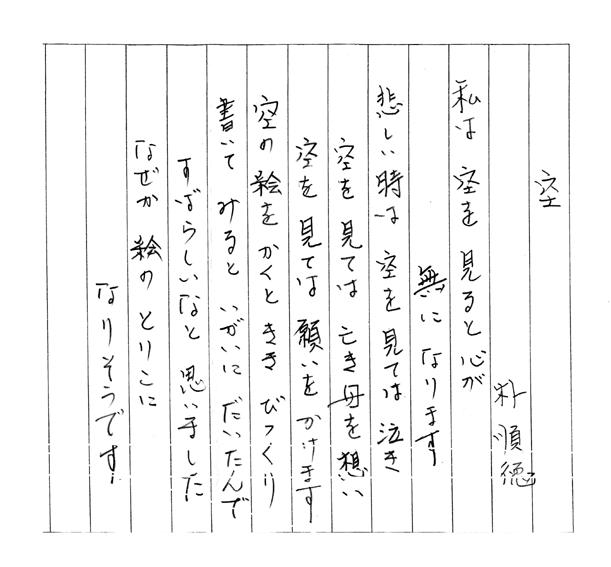 空
朴順徳
私は 空を 見ると心が
無に なります
悲しい時は 空を見ては 泣き
空を 見ては 亡き母を想い
空を 見ては 願いを かけます
空の 絵を かくと きき びっくり
書いて みると いがいに だいたんで
すばらしいなと 思いました
なぜか 絵の とりこに
なりそうです!